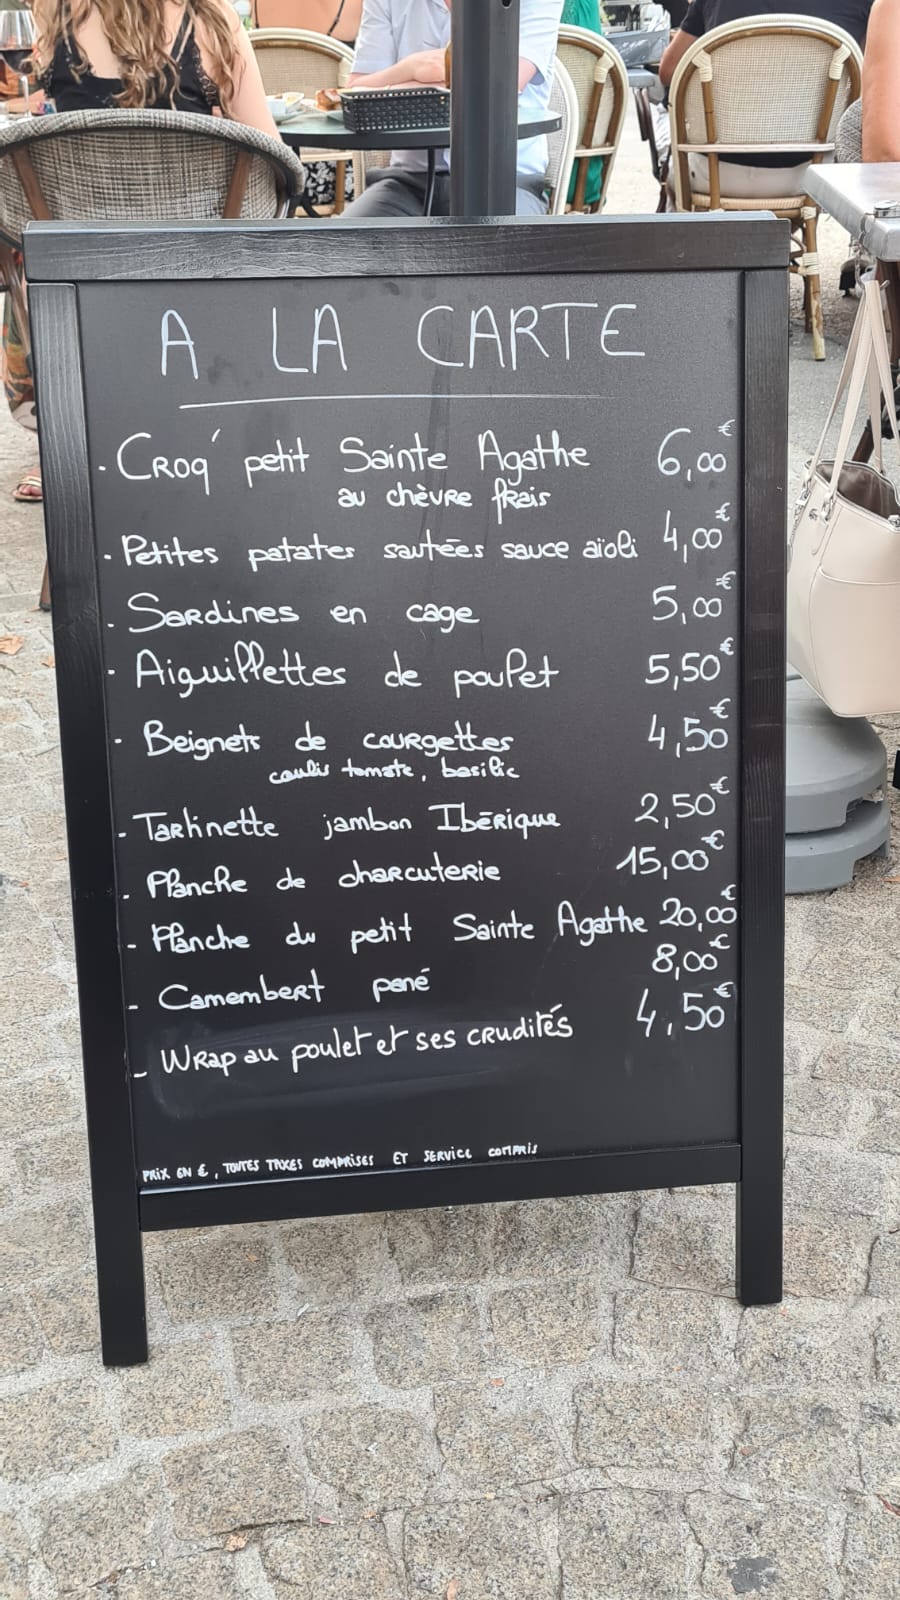 A LA CARTE
- Croq' petit Sainte Agathe 6,00€
au chèvre frais
- Petites patates sautées sauce aïoli 4,00€
- Sardines en cage 5,00€
- Aiguillettes de poulet 5,50€
- Beignets de courgettes 4,50€
coulis tomate, basilic
- Tartinette jambon Ibérique 2,50€
- Planche de charcuterie 15,00€
- Planche du petit Sainte Agathe 20,00€
- Camembert pané 8,00€
- Wrap au poulet et ses crudités 4,50€
PRIX EN €, TOUTES TAXES COMPRISES ET SERVICE COMPRIS